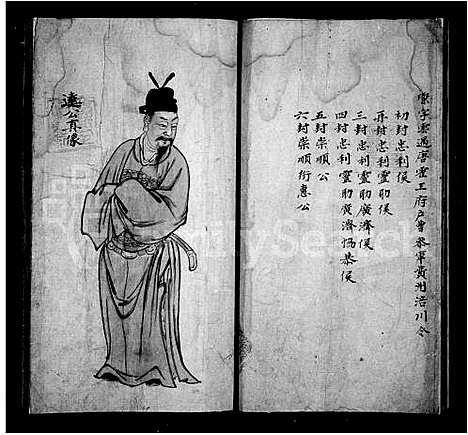 字雲過唐寧王府戶曹參軍黃州浯川令
初封忠利侯
再封忠利靈助侯
三封忠利靈助廣濟侯
四封忠利靈助廣濟協恭侯
五封崇順公
六封崇順衍惠公
遠公真像
FamilySearch